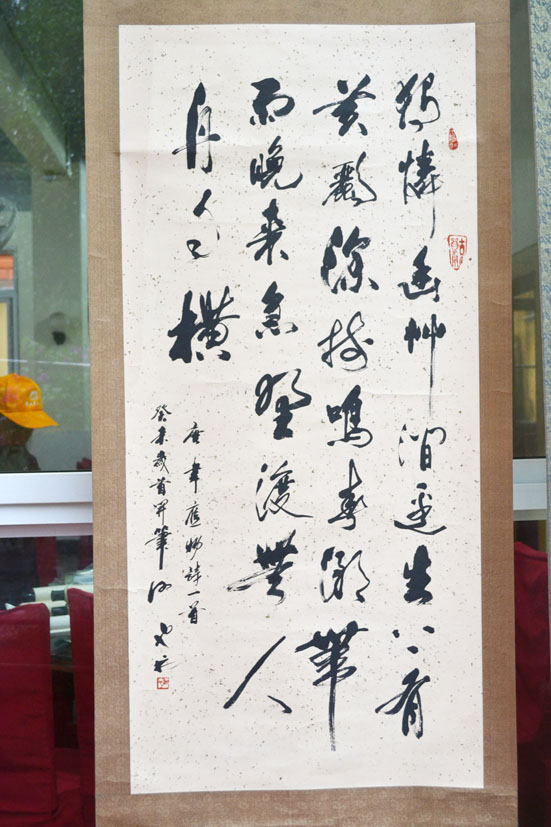 獨憐幽艸澗邊生上有
黃鸝深樹鳴春潮帶
雨晚來急野渡無人
舟自橫
唐韋應物詩一首
癸未歲首開筆